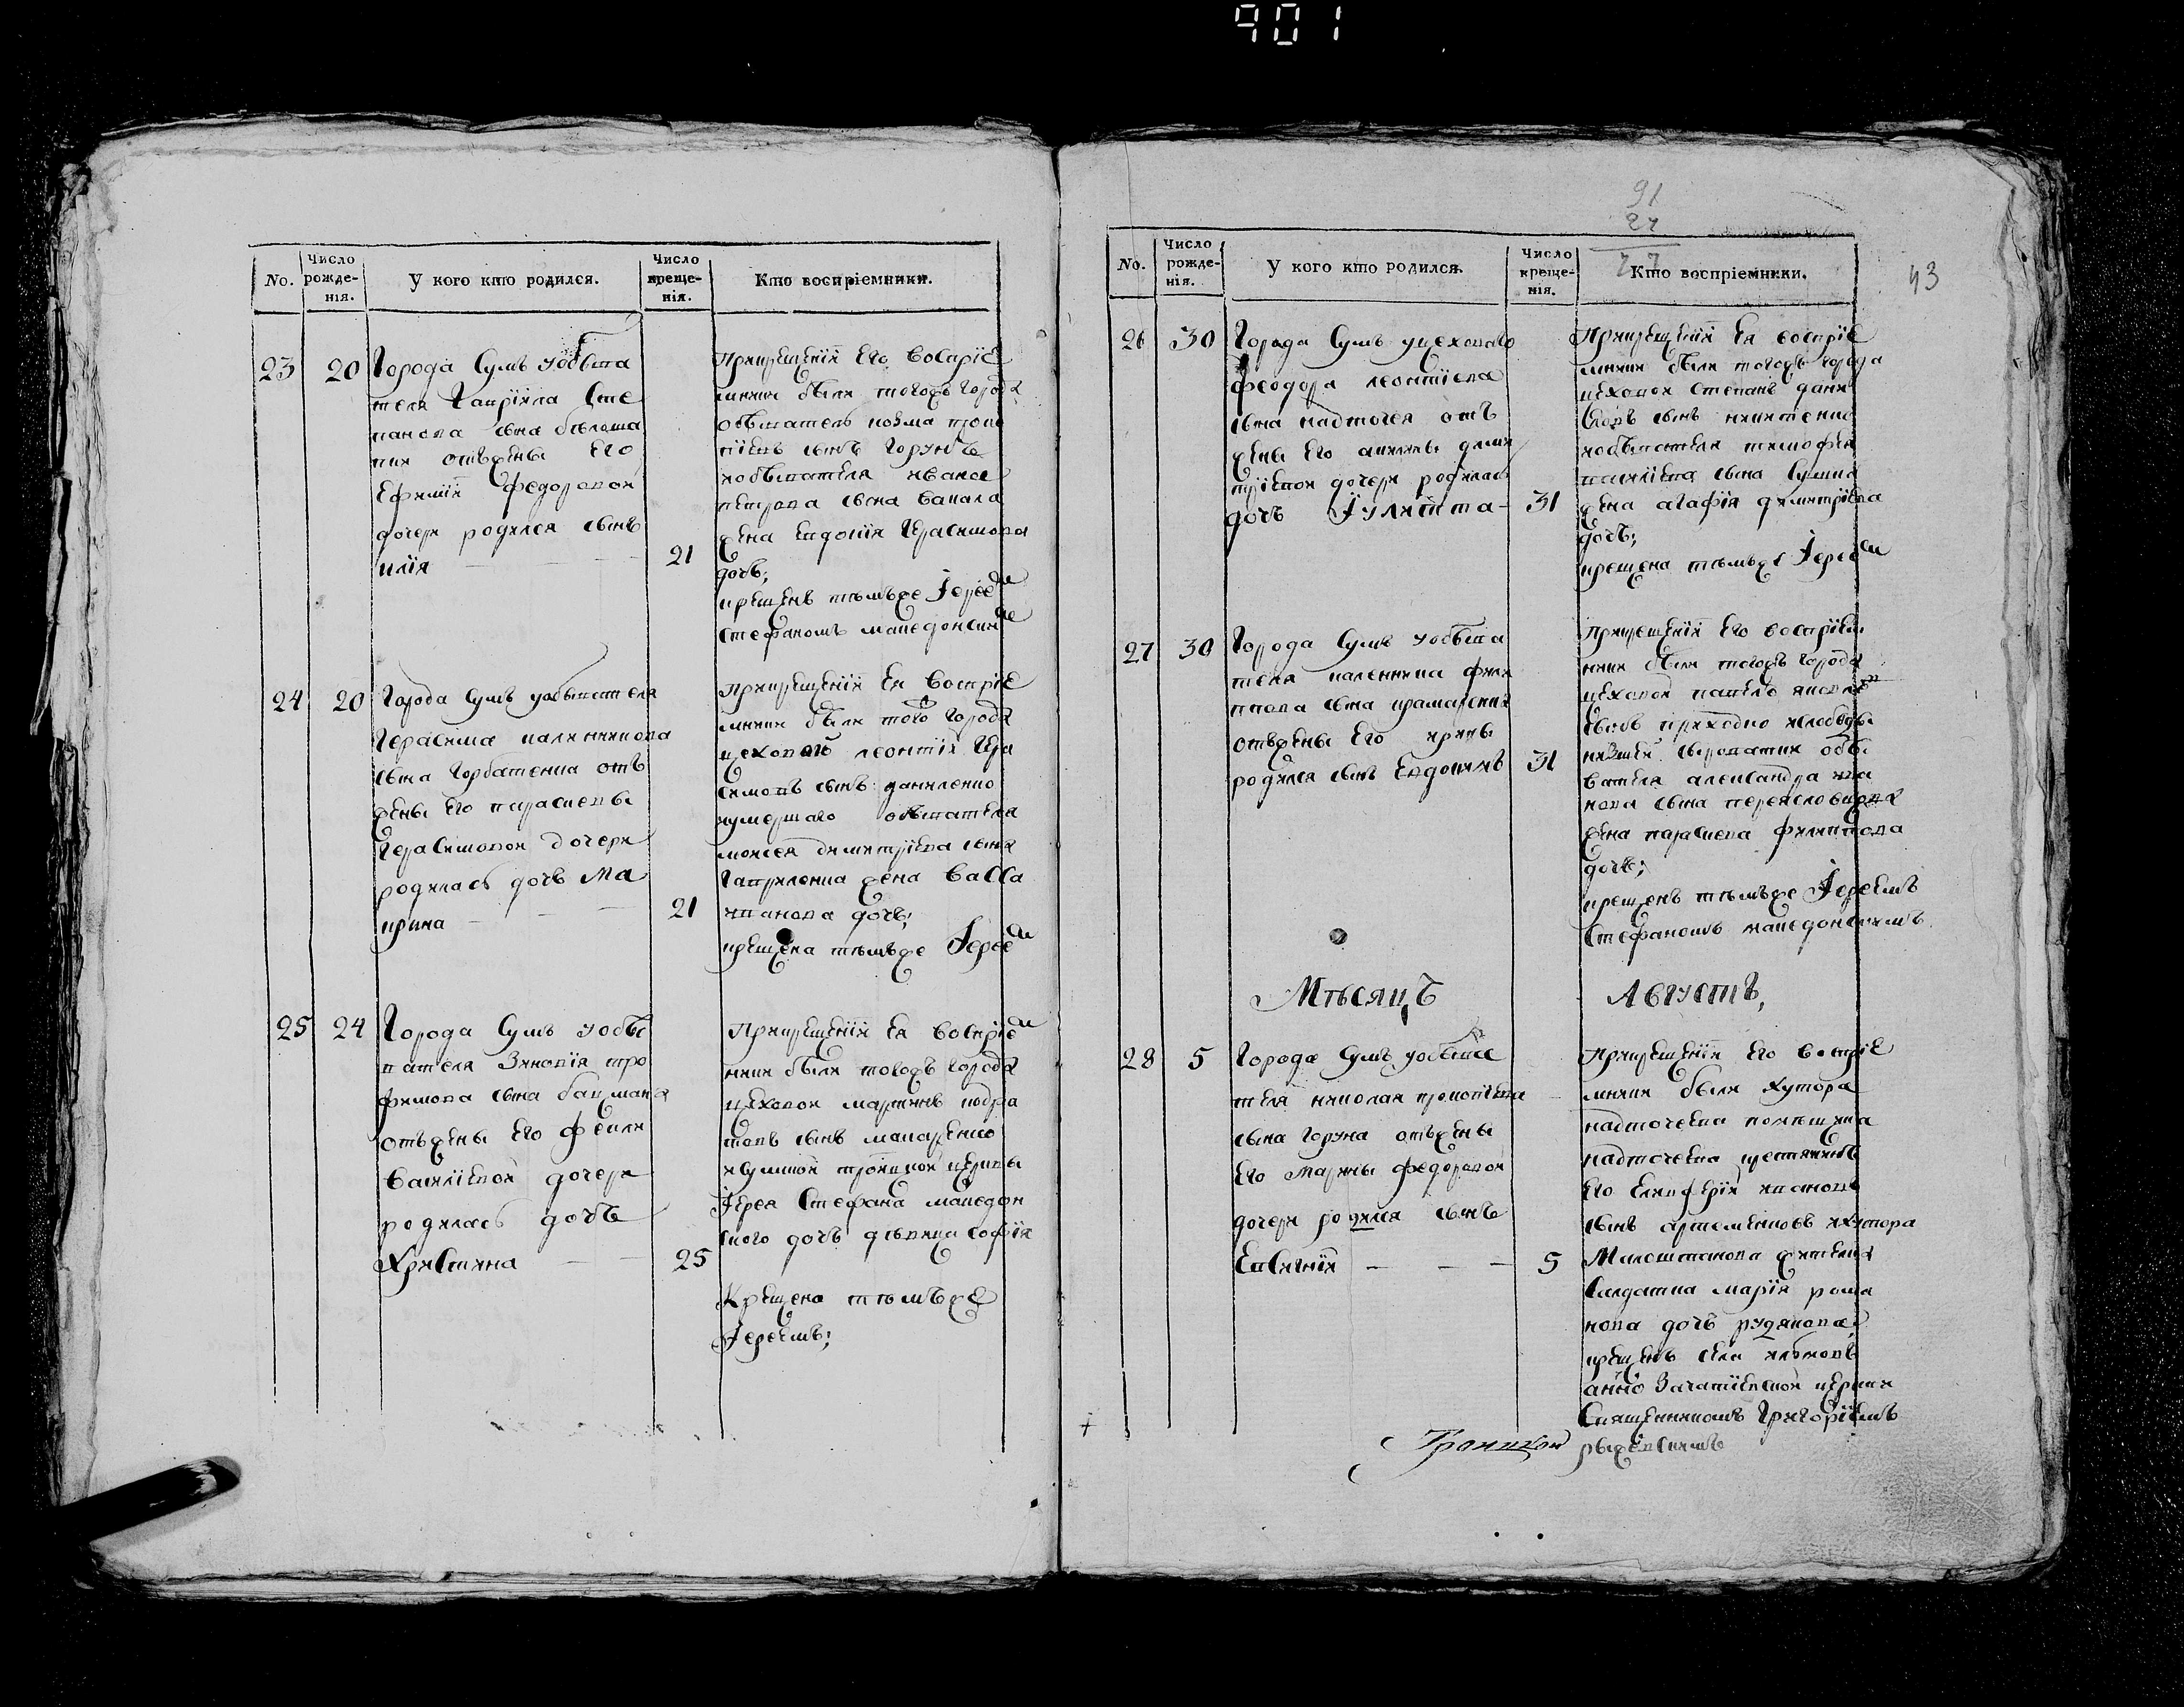 901
No. Число рожде-нія. У кого кто родился. Число креще-нія. Кто воспріемники.
23 20 Города Сумъ уобыва
теля Гавріила Сте
панова сына
отъжены Его
Ефиміи Федоровой
дочери родился сынъ
илія 21
Прикрещеніи Его воспріе
мники были тогожъ города
обыватель козма проко
піевъ сынъ Горунъ
иобывателя ивана
петрова сына
жена Евдокія Герасимова
дочь;
крещенъ тѣмъже Іерее
Стефаномъ македонски
24 20 Города Сумъ уобывателя
Герасима калинникова
сына Горбатенка отъ
жены Его парасковы
Герасимовой дочери
родилась дочь Ма
крина 21
Прикрещеніи Ея воспріе
мники были того города
цеховой леонтій Гера
симовъ сынъ даниленко
иумершаго обывателя
моисея димитріева сына
Гавриленка жена васса
иванова дочь;
крещена тѣмъже Іерее
25 24 Города Сумъ уобы
вателя Зиновія тро
фимова сына бацмана
отъжены Его феклы
василіевой дочери
родилась дочь
Христина 25
Прикрещеніи Ея воспріем
ники были тогожъ города
цеховой мартинъ кодра
товъ сынъ макаренко
исумской троицкой церкви
Іерея Стефана македон
ского дочь дѣвица софія
Крещена тѣмъже
Іереемъ;
91
27
43
No. Число рожде-нія. У кого кто родился. Число креще-нія. Кто воспріемники.
26 30 Города Сумъ уцеховаго
феодора леонтіева
сына надточея отъ
жены Его анны дими
тріевой дочери родилась
дочь Іулитта 31
Прикрещеніи Ея воспріе
мники были тогожъ города
цеховой Степанъ дани
ловъ сынъ никитенко
иобывателя тимофея
василіева сына
жена агафія димитріева
дочь;
крещена тѣмъже Іереем
27 30 Города Сумъ уобыва
теля калиника фили
ппова сына крамаренка
отъжены Его ирины
родился сынъ Евдокимъ 31
Прикрещеніи Его воспріем
ники были тогожъ города
цеховой павелъ яковле
сынъ приходко ислободы
нижней сыроватки обы
вателя александра ива
нова сына переясловцова
жена параскева филиппова
дочь;
крещенъ тѣмъже Іереемъ
Стефаномъ македонскимъ
Мѣсяцъ Августъ,
28 5 Города Сумъ уобыва
теля николая прокопіева
сына Горуна отъжены
Его марины федоровой
дочери родился сынъ
Евсигній 5
Прикрещеніи Его воспріе
мники были хутора
надточеева помѣщика
надточеева крестянинъ
Его Елифферій ивановъ
сынъ артеменковъ ихутора
жителка
Салдатка марія рома
нова дочь рудякова;
крещенъ села
анно Зачатіевской церкви
Священникомъ Григоріемъ
рыжевскимъ
Троицкой